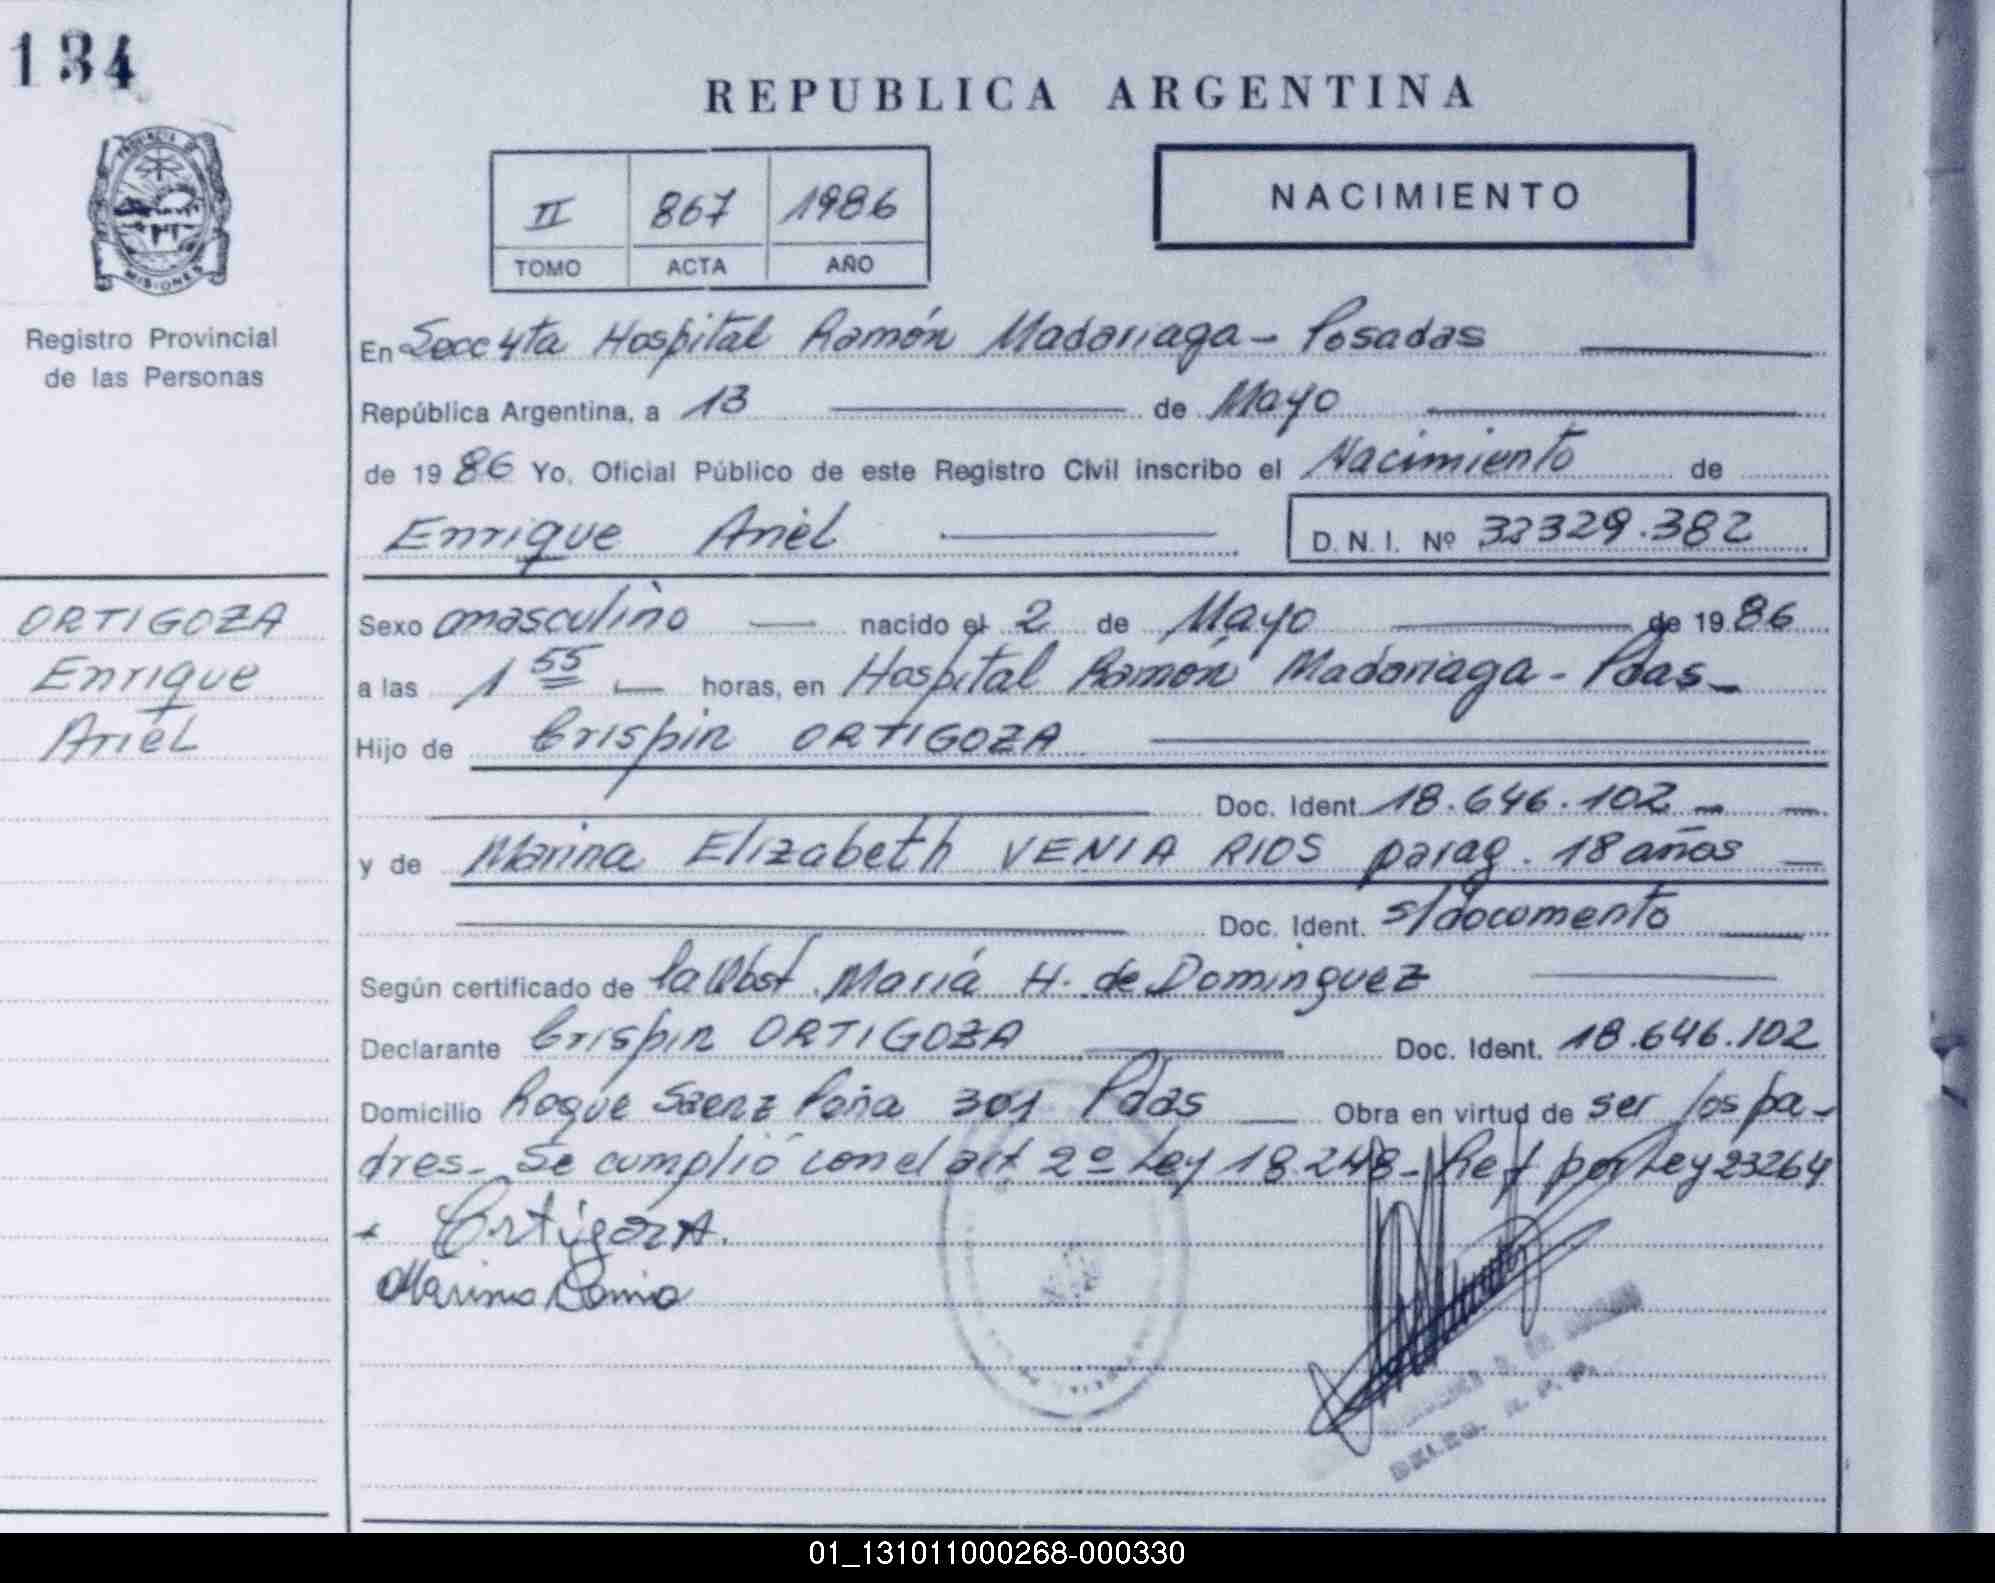 134
REPUBLICA ARGENTINA
PROVINCIA DE
MISIONES
II 867 1986
TOMO ACTA AÑO
NACIMIENTO
Registro Provincial
de las Personas
En Secc 4ta Hospital Ramón Madariaga - Posadas
República Argentina, a 13 de Mayo
de 19 86 Yo, Oficial Público de este Registro Civil inscribo el Nacimiento de
Enrique Ariel D.N.I. Nº 32329.382
ORTIGOZA
Enrique
Ariel
Sexo masculino nacido el 2 de Mayo de 19 86
a las 1 55 horas, en Hospital Ramón Madariaga - Pdas
Hijo de Crispin ORTIGOZA
Doc. Ident. 18.646.102
y de Marina Elizabeth VENIA RIOS parag. 18 años
Doc. Ident. s/documento
Según certificado de la Obst. María H. de Dominguez
Declarante Crispin ORTIGOZA Doc. Ident. 18.646.102
Domicilio Roque Saenz Peña 301 Pdas Obra en virtud de ser los pa-
dres. Se cumplió con el art 2º Ley 18.248 - Ref por Ley 23264
Ortigoza.
Marina
DELEG. R. P. P.
01_131011000268-000330